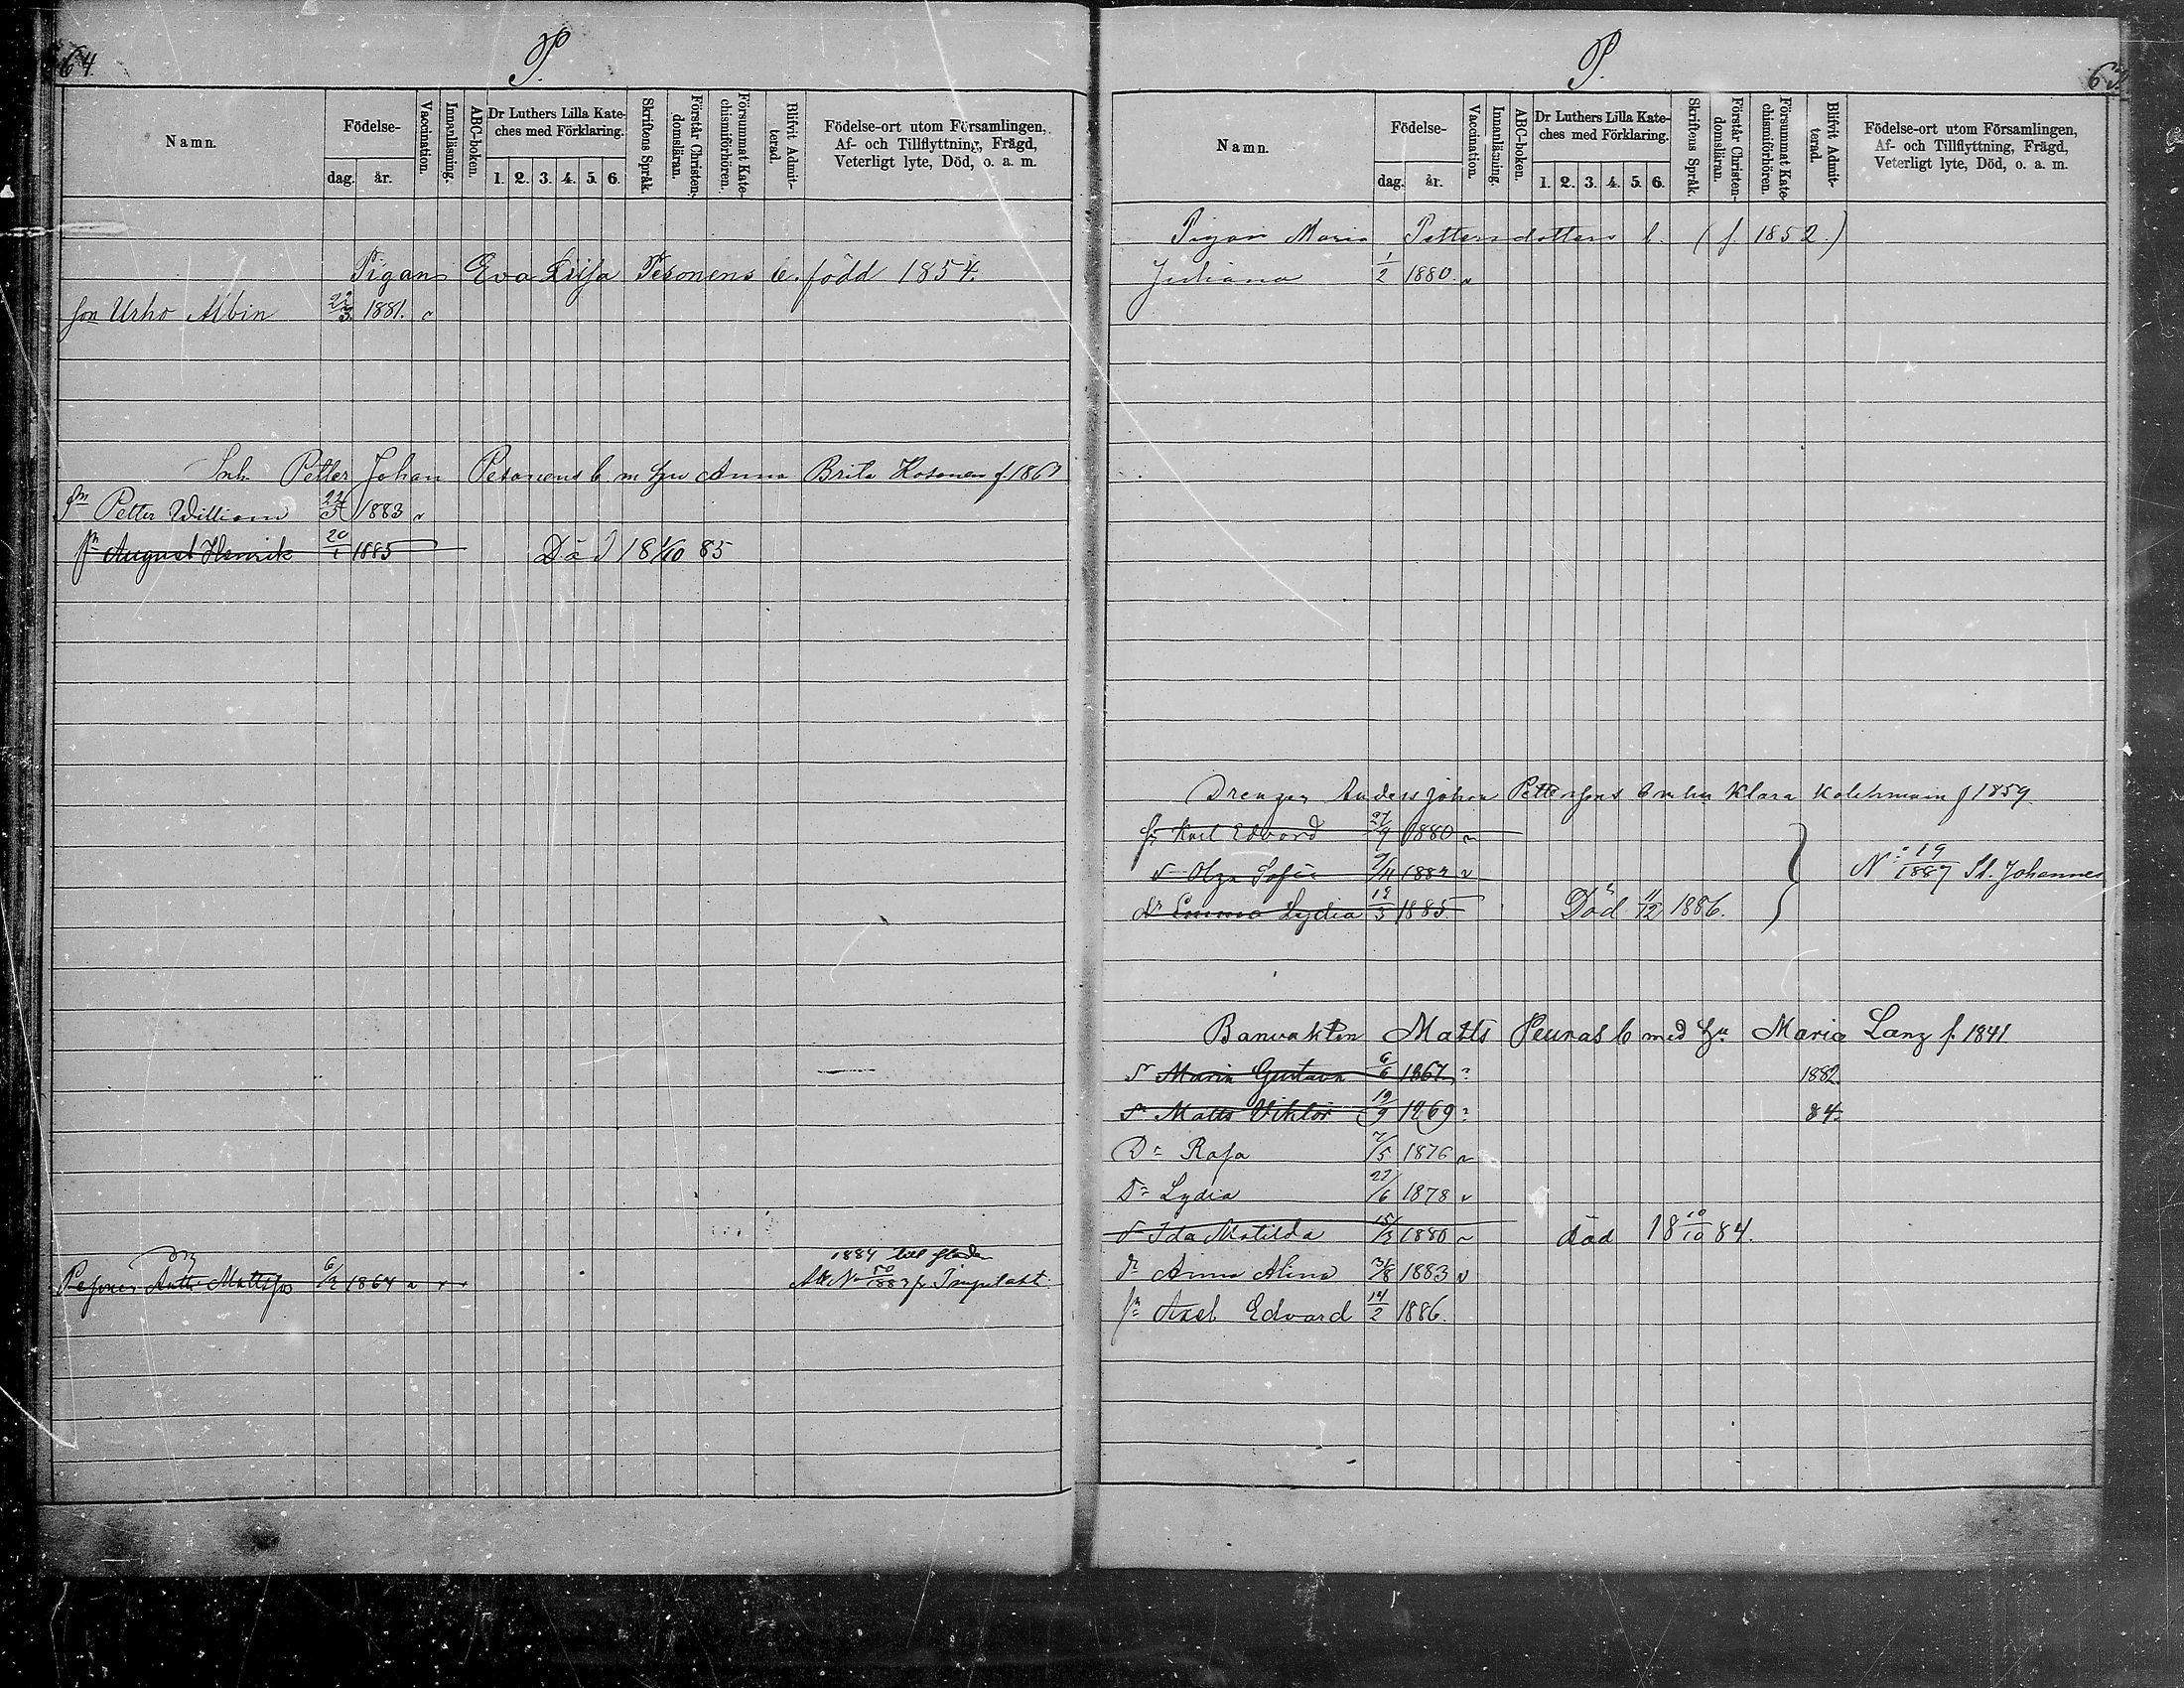 64.
P.
Namn.
Födelse-
dag.
år.
Vaccination.
Innanläsning.
ABC-boken.
Dr Luthers Lilla Kate-
ches med Förklaring.
1. 2. 3. 4. 5. 6.
Skriftens Språk.
Förstår Christen-
domsläran.
Försummat Kate-
chismiförhören.
Blifvit Admit-
terad.
Födelse-ort utom Församlingen,
Af- och Tillflyttning, Frägd,
Veterligt lyte, Död, o. a. m.
Pigans Eva Lisa Pesonens b. född 1854.
son Urho Albin 1881.
Inh. Petter Johan Pesonens b m hu Anna Brita Kosonen f.
sn Petter William 1883
sn August Henrik 20/1 1885 Död 18 1/10 85
1884 till staden
Pesonen Antti Mattsson 1864 Att. No 50/1883 fr Impilaks
P.
Namn.
Födelse-
dag.
år.
Vaccination.
Innanläsning.
ABC-boken.
Dr Luthers Lilla Kate-
ches med Förklaring.
1. 2. 3. 4. 5. 6.
Skriftens Språk.
Förstår Christen-
domsläran.
Försummat Kate-
chismiförhören.
Blifvit Admit-
terad.
Födelse-ort utom Församlingen,
Af- och Tillflyttning, Frägd,
Veterligt lyte, Död, o. a. m.
Pigan Maria Pettersdotters b. (f. 1852.)
Juliana 1/2 1880.
Drengen Anders Johan Pettersons b m hu Klara Kolehmain f 1859
sn Karl Edvard 27/9 1880
Dr Olga Sofia 1882
No 19/1887 St. Johannes
Dr Emma Lydia 19/3 1885 Död 11/12 1886.
Banvakten Matts Peunas b med hu Maria Lanz f. 1841
Dr Maria Gustava 6/6 1867 1882
Sn Matts Viktor 19/9 1869 84.
Dr Rosa 7/5 1876
Dr Lydia 27/6 1878
Dr Ida Matilda 15/3 1880 död 18 10/10 84.
Dr Anna Alina 31/8 1883
sn Axel Edvard 14/2 1886.